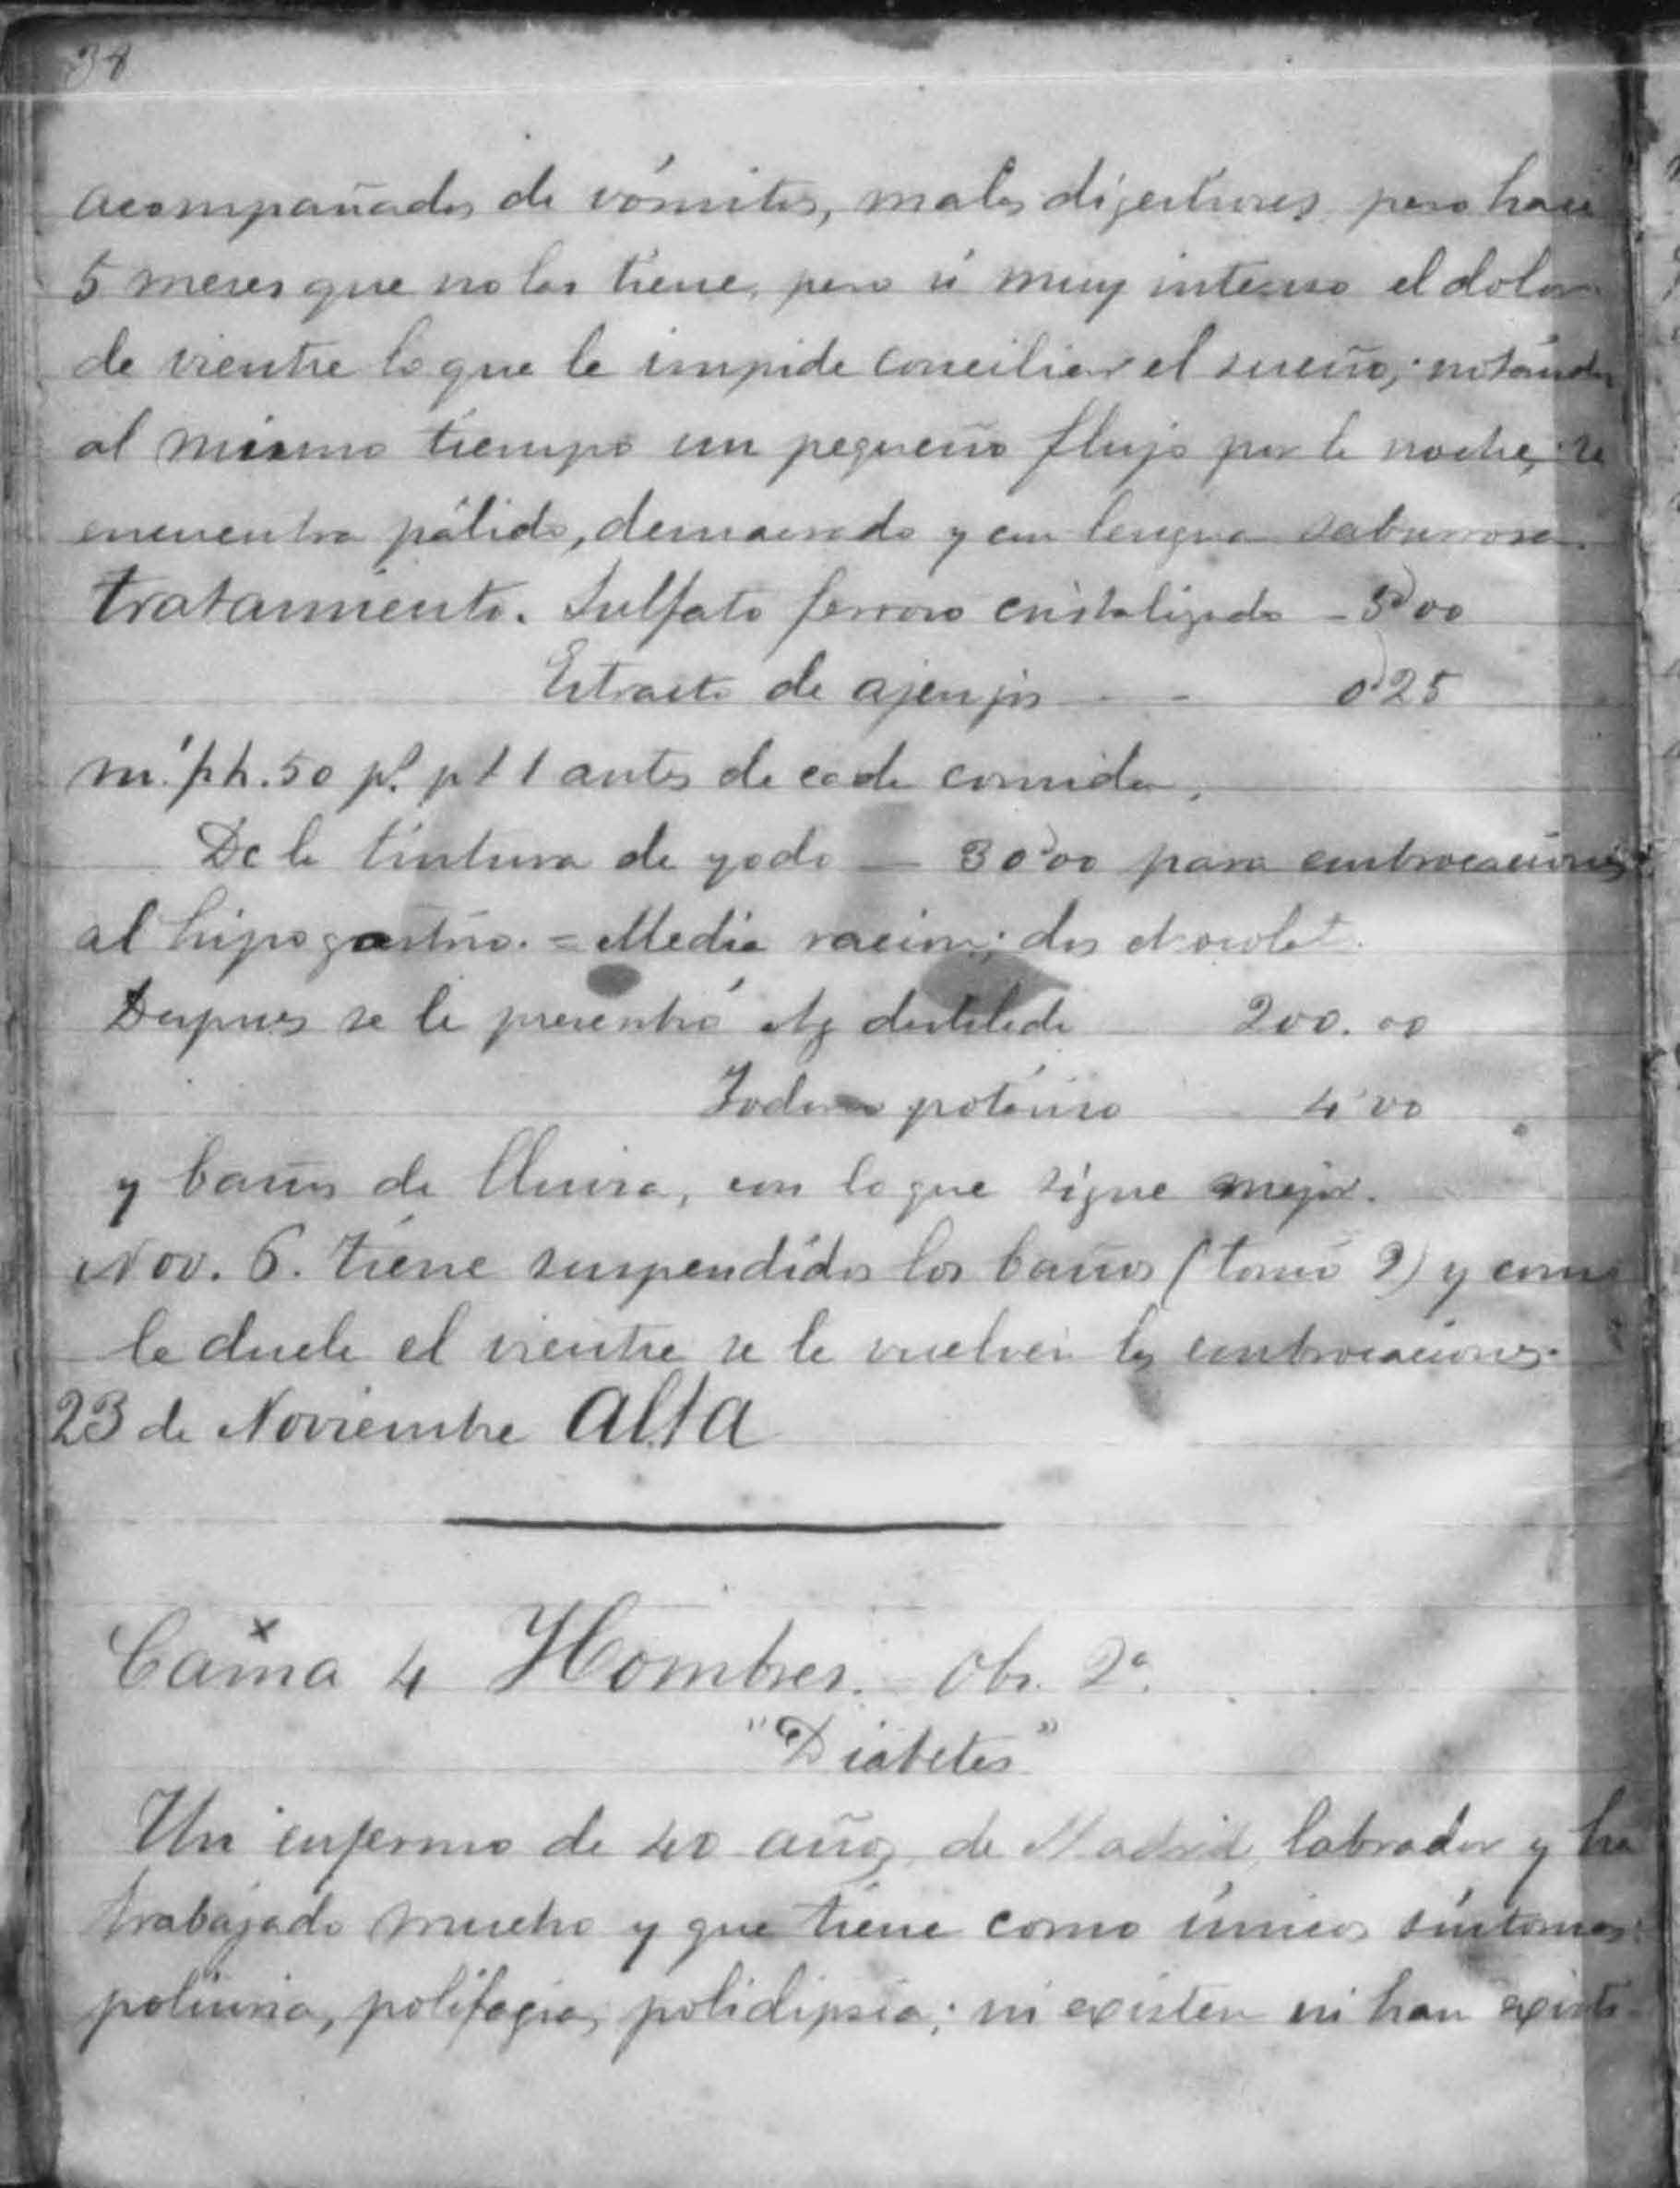 38
acompañados de vómitos, malas digestiones pero hace
5 meses que no los tiene, pero si muy intenso el dolor
de vientre lo que le impide conciliar el sueño; notándose
al mismo tiempo un pequeño flujo por la noche; se
encuentra pálido, demacrado y con lengua saburrosa.
Tratamiento. Sulfato ferroso cristalizado - 5'00
Estracto de ajenjos - - 0'25
m. ph. 50 pl. p t 1 antes de cada comida.
De la tintura de yodo - 30'00 para embrocaciones
al hipogastrio. = Media racion; dos chocolat.
Despues se le Ag destilada 200.00
Ioduro potásico 4'00
y baños de lluvia, con lo que sigue mejor.
Nov. 6. tiene suspendidos los baños (tomó 9) y como
le duele el vientre se le vuelven las embrocaciones.
23 de Noviembre alta
Cama 4 Hombres. Obs. 2ª.
"Diabetes"
Un enfermo de 40 años, de Madrid, labrador y ha
trabajado mucho y que tiene como únicos síntomas:
poliuria, polifagia, polidipsia; ni existen ni han existi-